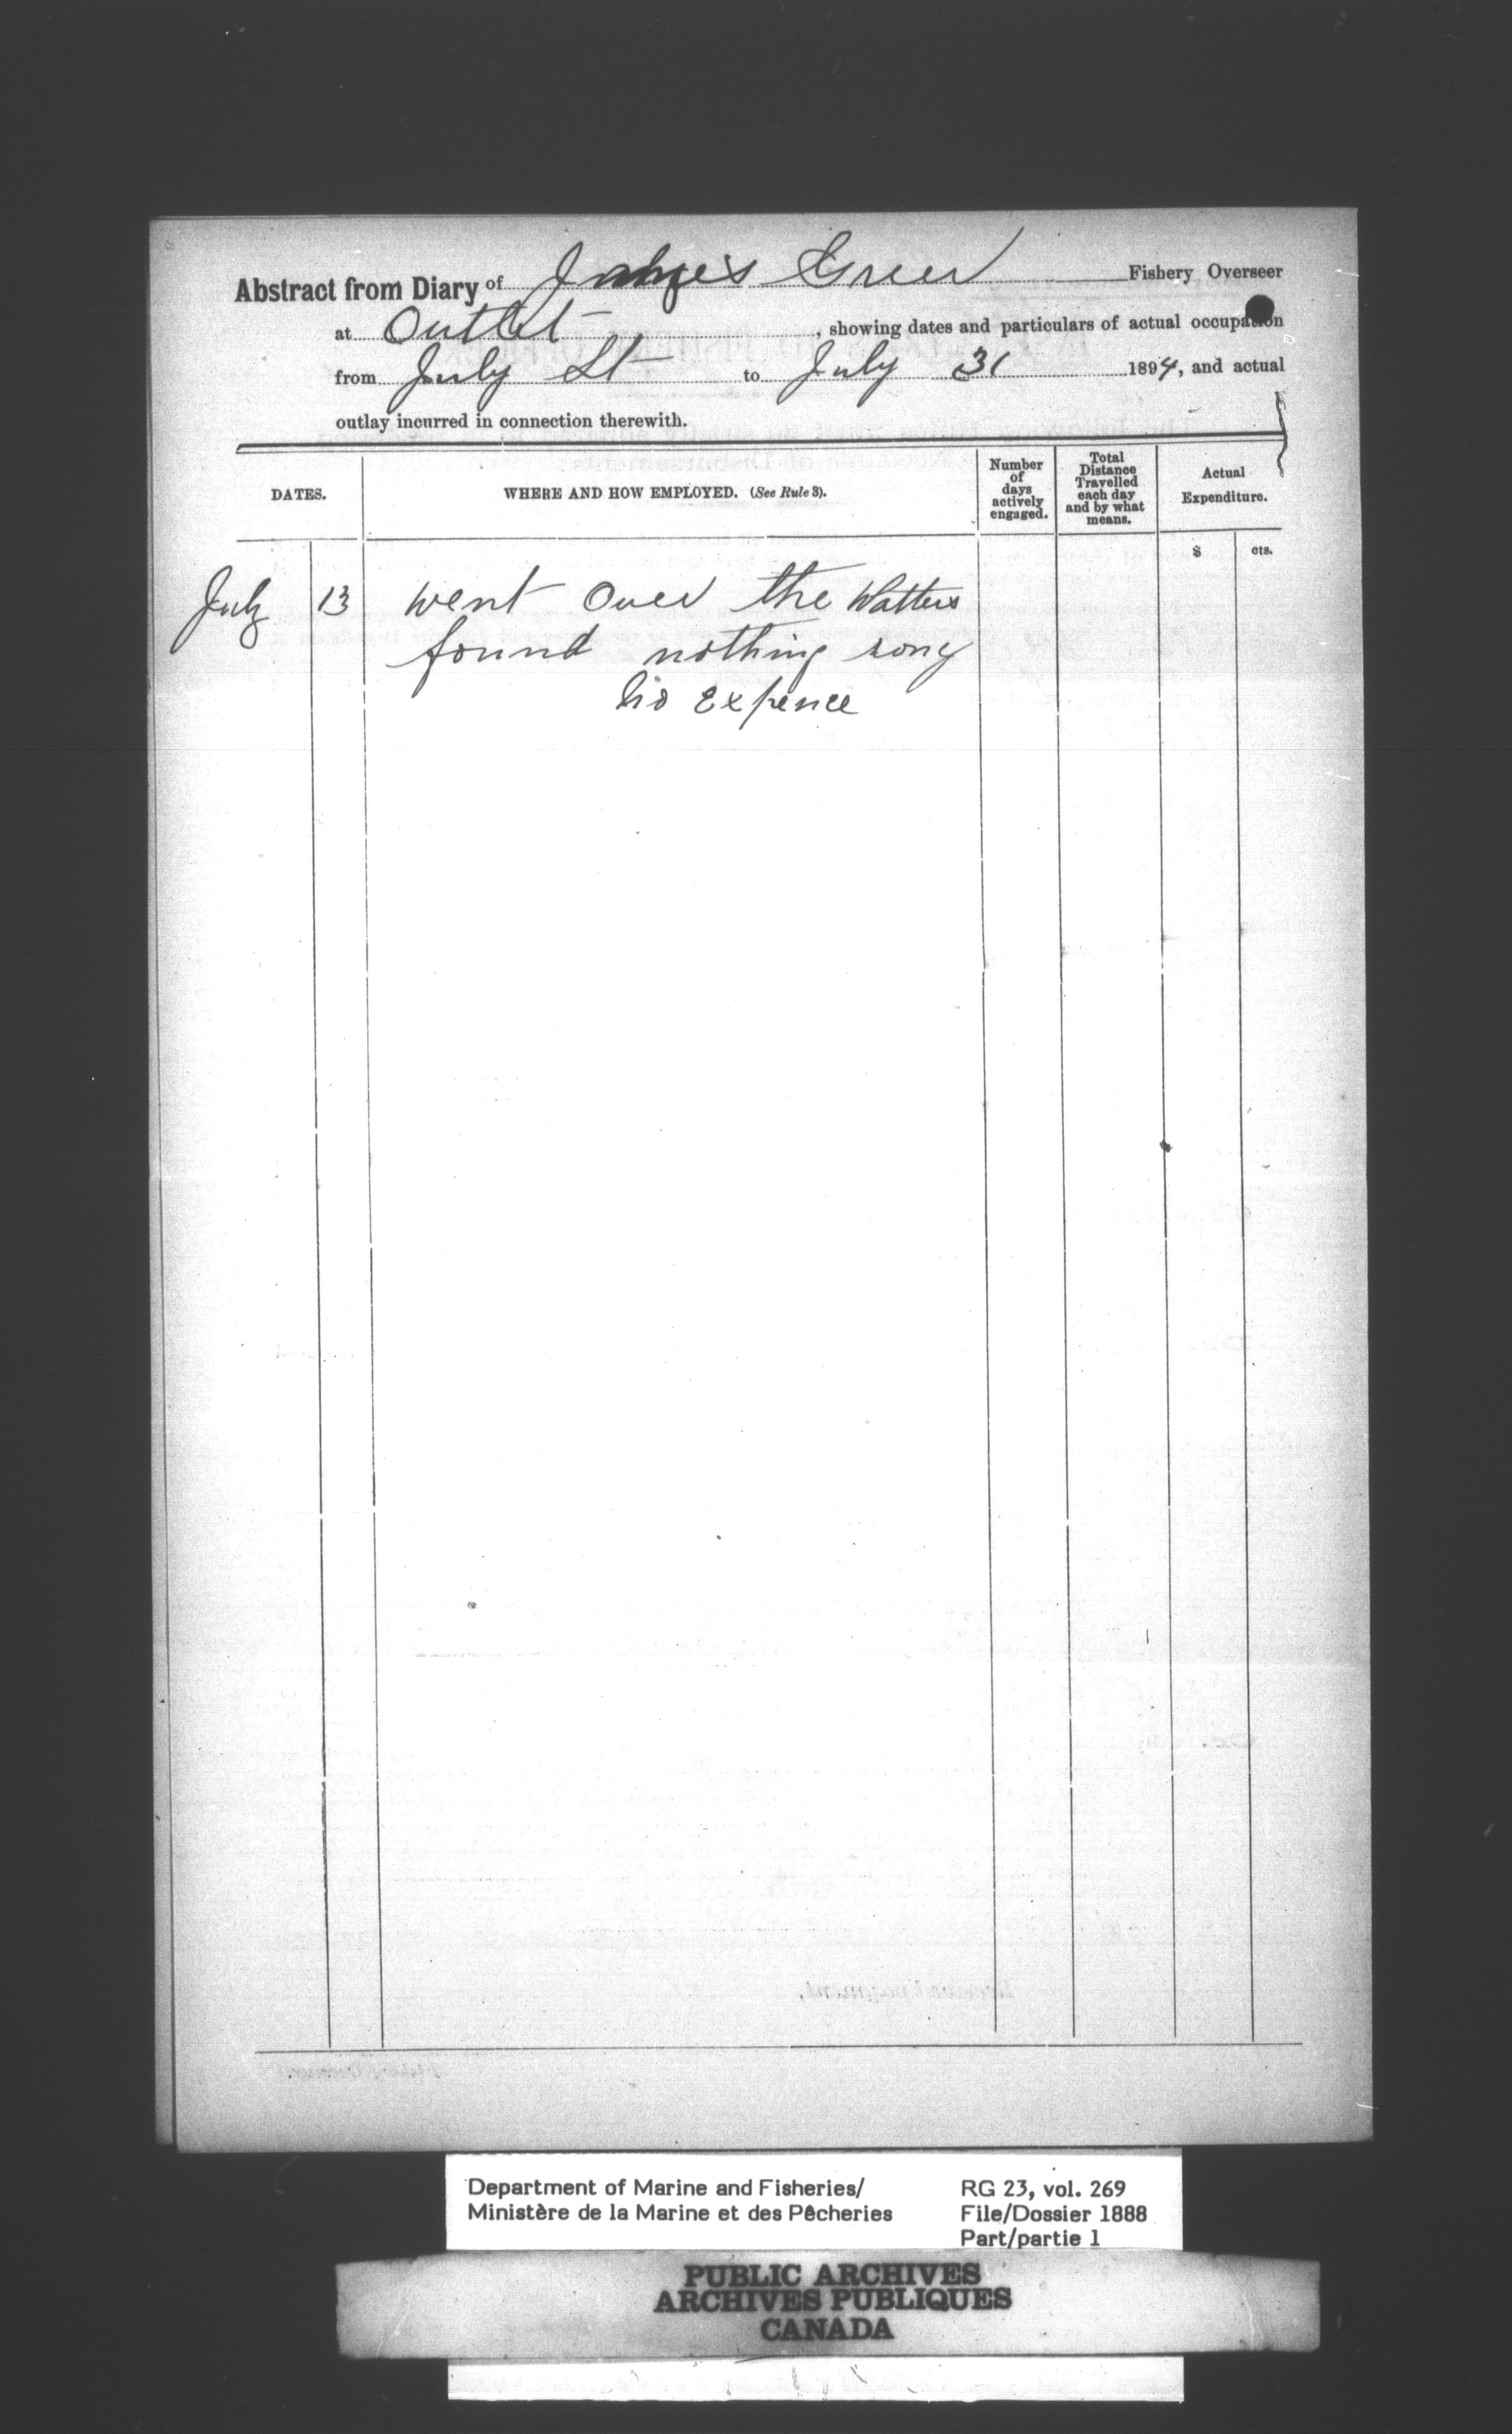 Abstract from Diary of James Greer Fishery Overseer
at Outlet, showing dates and particulars of actual occupation
from July St to July 31 1894, and actual
outlay incurred in connection therewith.
DATES. WHERE AND HOW EMPLOYED. (See Rule 3). Number of days actively engaged. Total Distance Travelled each day and by what means. Actual Expenditure.
$ cts.
July 13 went over the Watters
found nothing rong
No Expence
Department of Marine and Fisheries/ RG 23, vol. 269
Ministère de la Marine et des Pêcheries File/Dossier 1888
Part/partie 1
PUBLIC ARCHIVES
ARCHIVES PUBLIQUES
CANADA